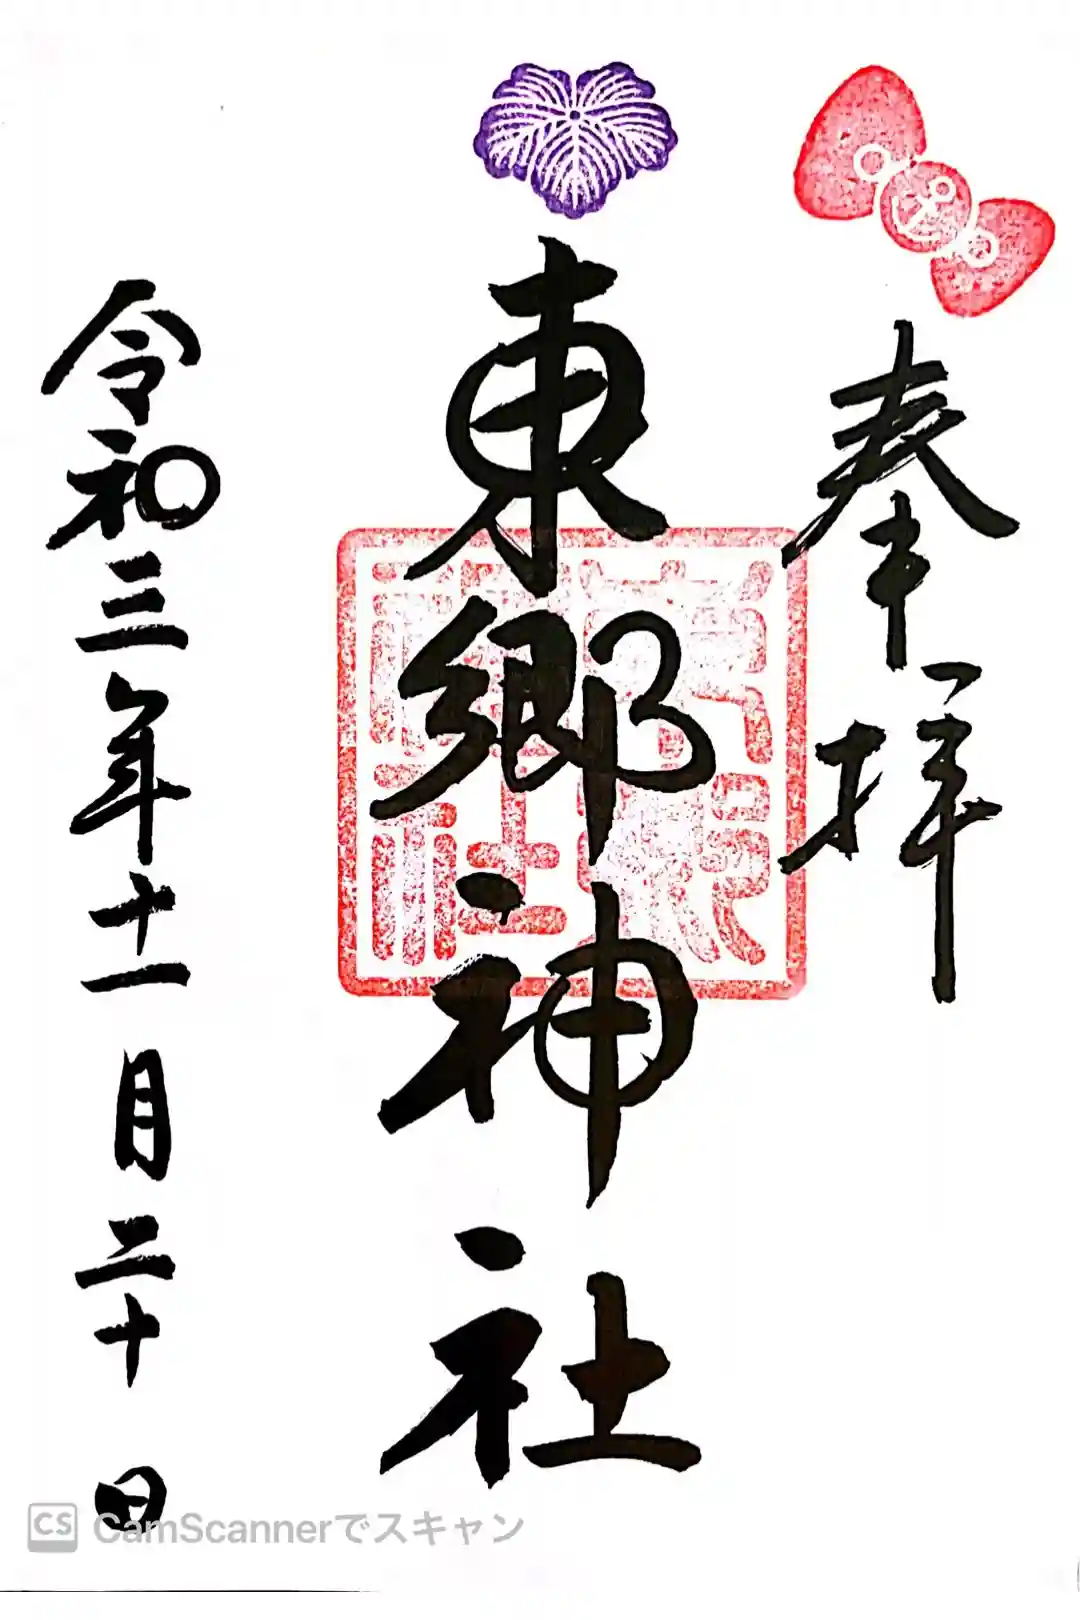 奉拝
東郷神社
令和三年十一月二十日
東郷神社
CS CamScannerでスキャン